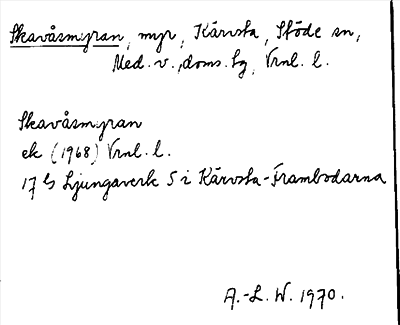 Skavåsmyran, myr, Kärvsta, Stöde sn,
Med. v., doms. hg, Vrnl. l.
Skavåsmyran
ek (1968) Vrnl. l.
17 G Ljungaverk S i Kärvsta-Frambodarna
A.-L. W. 1970.